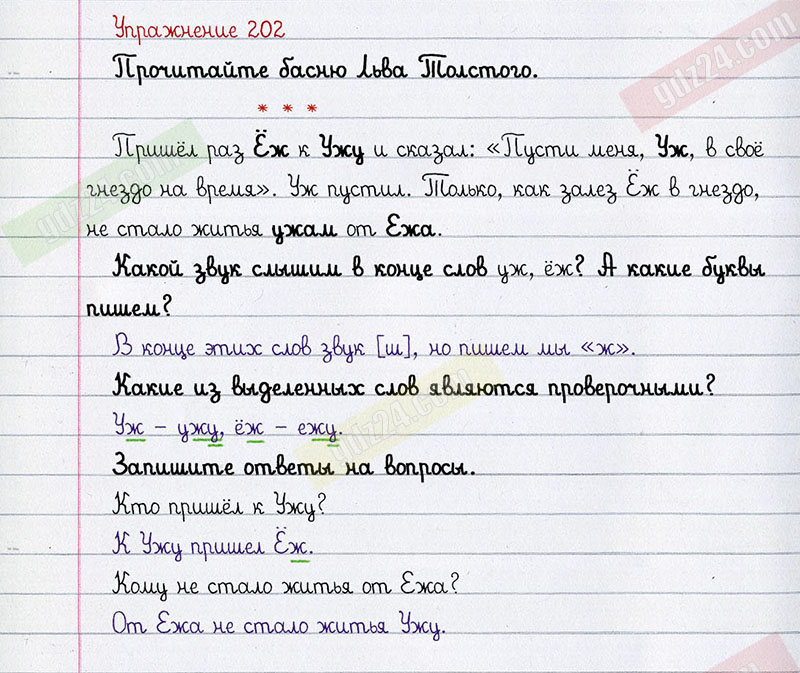 Упражнение 202
Прочитайте басню Льва Толстого.
* * *
Пришёл раз Ёж к Ужу и сказал: «Пусти меня, Уж, в своё
гнездо на время». Уж пустил. Только, как залез Ёж в гнездо,
не стало житья ужам от Ежа.
Какой звук слышим в конце слов уж, ёж? А какие буквы
пишем?
В конце этих слов звук [ш], но пишем мы «ж».
Какие из выделенных слов являются проверочными?
Уж – ужу, ёж – ежу.
Запишите ответы на вопросы.
Кто пришёл к Ужу?
К Ужу пришел Ёж.
Кому не стало житья от Ежа?
От Ежа не стало житья Ужу.
gdz24.com
gdz24.com
gdz24.com
gdz24.com